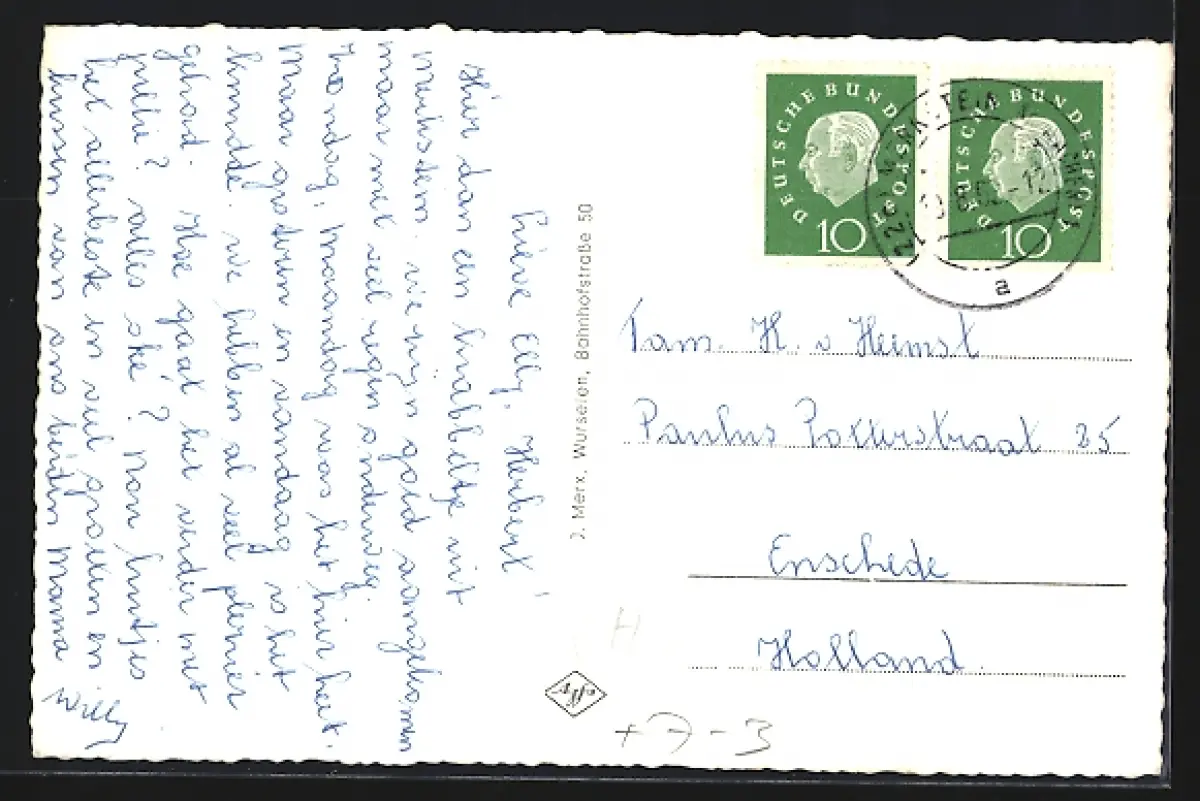 Lieve Elly, Herbert,
Hier dan een krabbeltje uit
Merkstein. we zijn goed aangekomen
maar met veel regen onderweg.
Zondag, Maandag was het hier heet.
Maar gisteren en vandaag is het
we hebben al veel plezier
gehad. Hoe gaat het verder met
jullie? alles oké? Nou luitjes
het allerbeste en veel groeten en
kussen van ons beiden Mama
Willy
J. Merx, Würselen, Bahnhofstraße 50
DEUTSCHE BUNDESPOST
10
DEUTSCHE BUNDESPOST
10
a
Fam. H. v Heemst
Paulus Potterstraat 25
Enschede
Holland.
H
+7-3